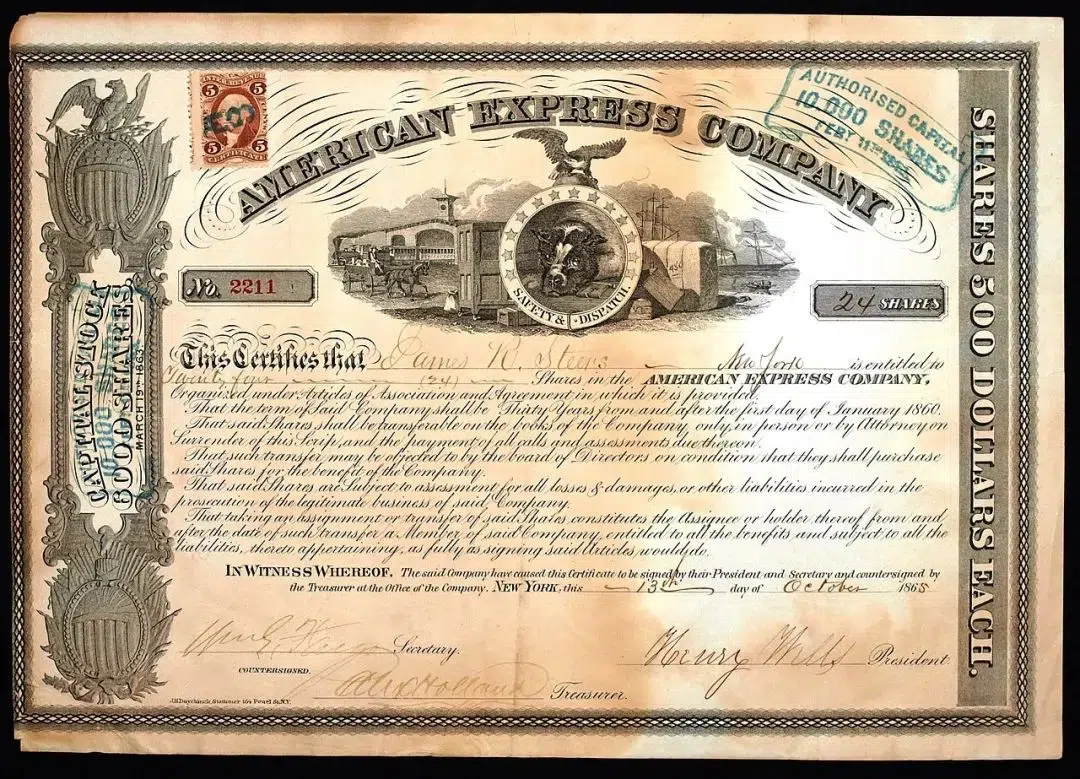 AMERICAN EXPRESS COMPANY
5 5
5 5
CERTIFICATE
AUTHORISED CAPITAL
10,000 SHARES
FEBY 11TH
SAFETY & DISPATCH.
No. 2211
24 SHARES
This Certifies that James R. Steers New York is entitled to
Twenty four (24) Shares in the AMERICAN EXPRESS COMPANY,
Organized under Articles of Association and Agreement in which it is provided:
That the term of Said Company shall be Thirty Years from and after the first day of January 1860.
That said Shares shall be transferable on the books of the Company, only, in person or by Attorney on
Surrender of this Scrip, and the payment of all calls and assessments due thereon.
That such transfer may be objected to by the board of Directors, on condition that they shall purchase
said Shares for the benefit of the Company.
That said Shares are Subject to assessment for all losses & damages, or other liabilities incurred in the
prosecution of the legitimate business of said Company.
That taking an assignment or transfer of said Shares constitutes the Assignee or holder thereof, from and
after the date of such transfer a Member of said Company, entitled to all the benefits and subject to all the
liabilities, thereto appertaining, as fully as signing said Articles, would do.
IN WITNESS WHEREOF. The said Company have caused this Certificate to be signed by their President and Secretary and countersigned by
the Treasurer at the Office of the Company. NEW YORK, this 13th day of October 1865
Secretary.
Henry Wells President.
COUNTERSIGNED.
Alex Holland Treasurer.
Stationer 164 Pearl St. N.Y.
CAPITAL STOCK
6000 SHARES
MARCH 19TH 1863
10,000
SHARES 500 DOLLARS EACH.